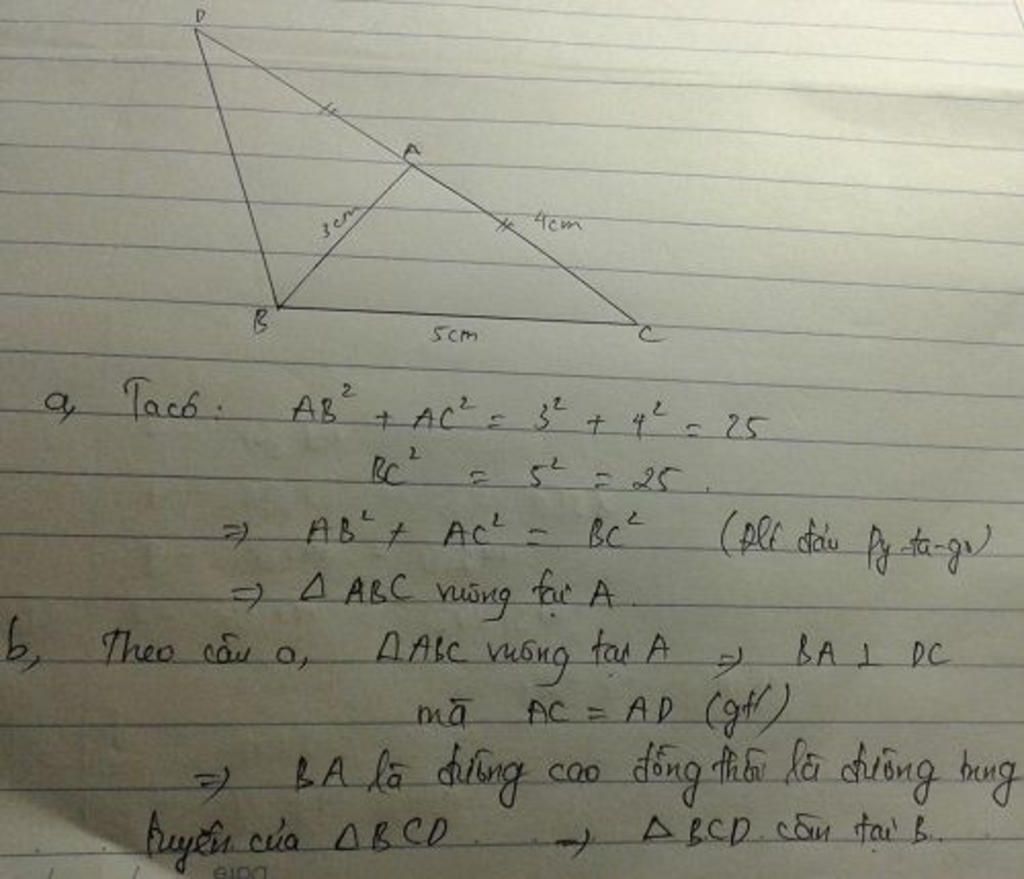 D
A
3cm
4cm
B
5cm
C
a, Ta có: AB² + AC² = 3² + 4² = 25
BC² = 5² = 25.
=> AB² + AC² = BC² (Đlí đảo Py-ta-go)
=> Δ ABC vuông tại A.
b, Theo câu a, ΔABC vuông tại A => BA ⊥ DC
mà AC = AD (gt)
=> BA là đường cao đồng thời là đường trung
tuyến của ΔBCD. => ΔBCD cân tại B.